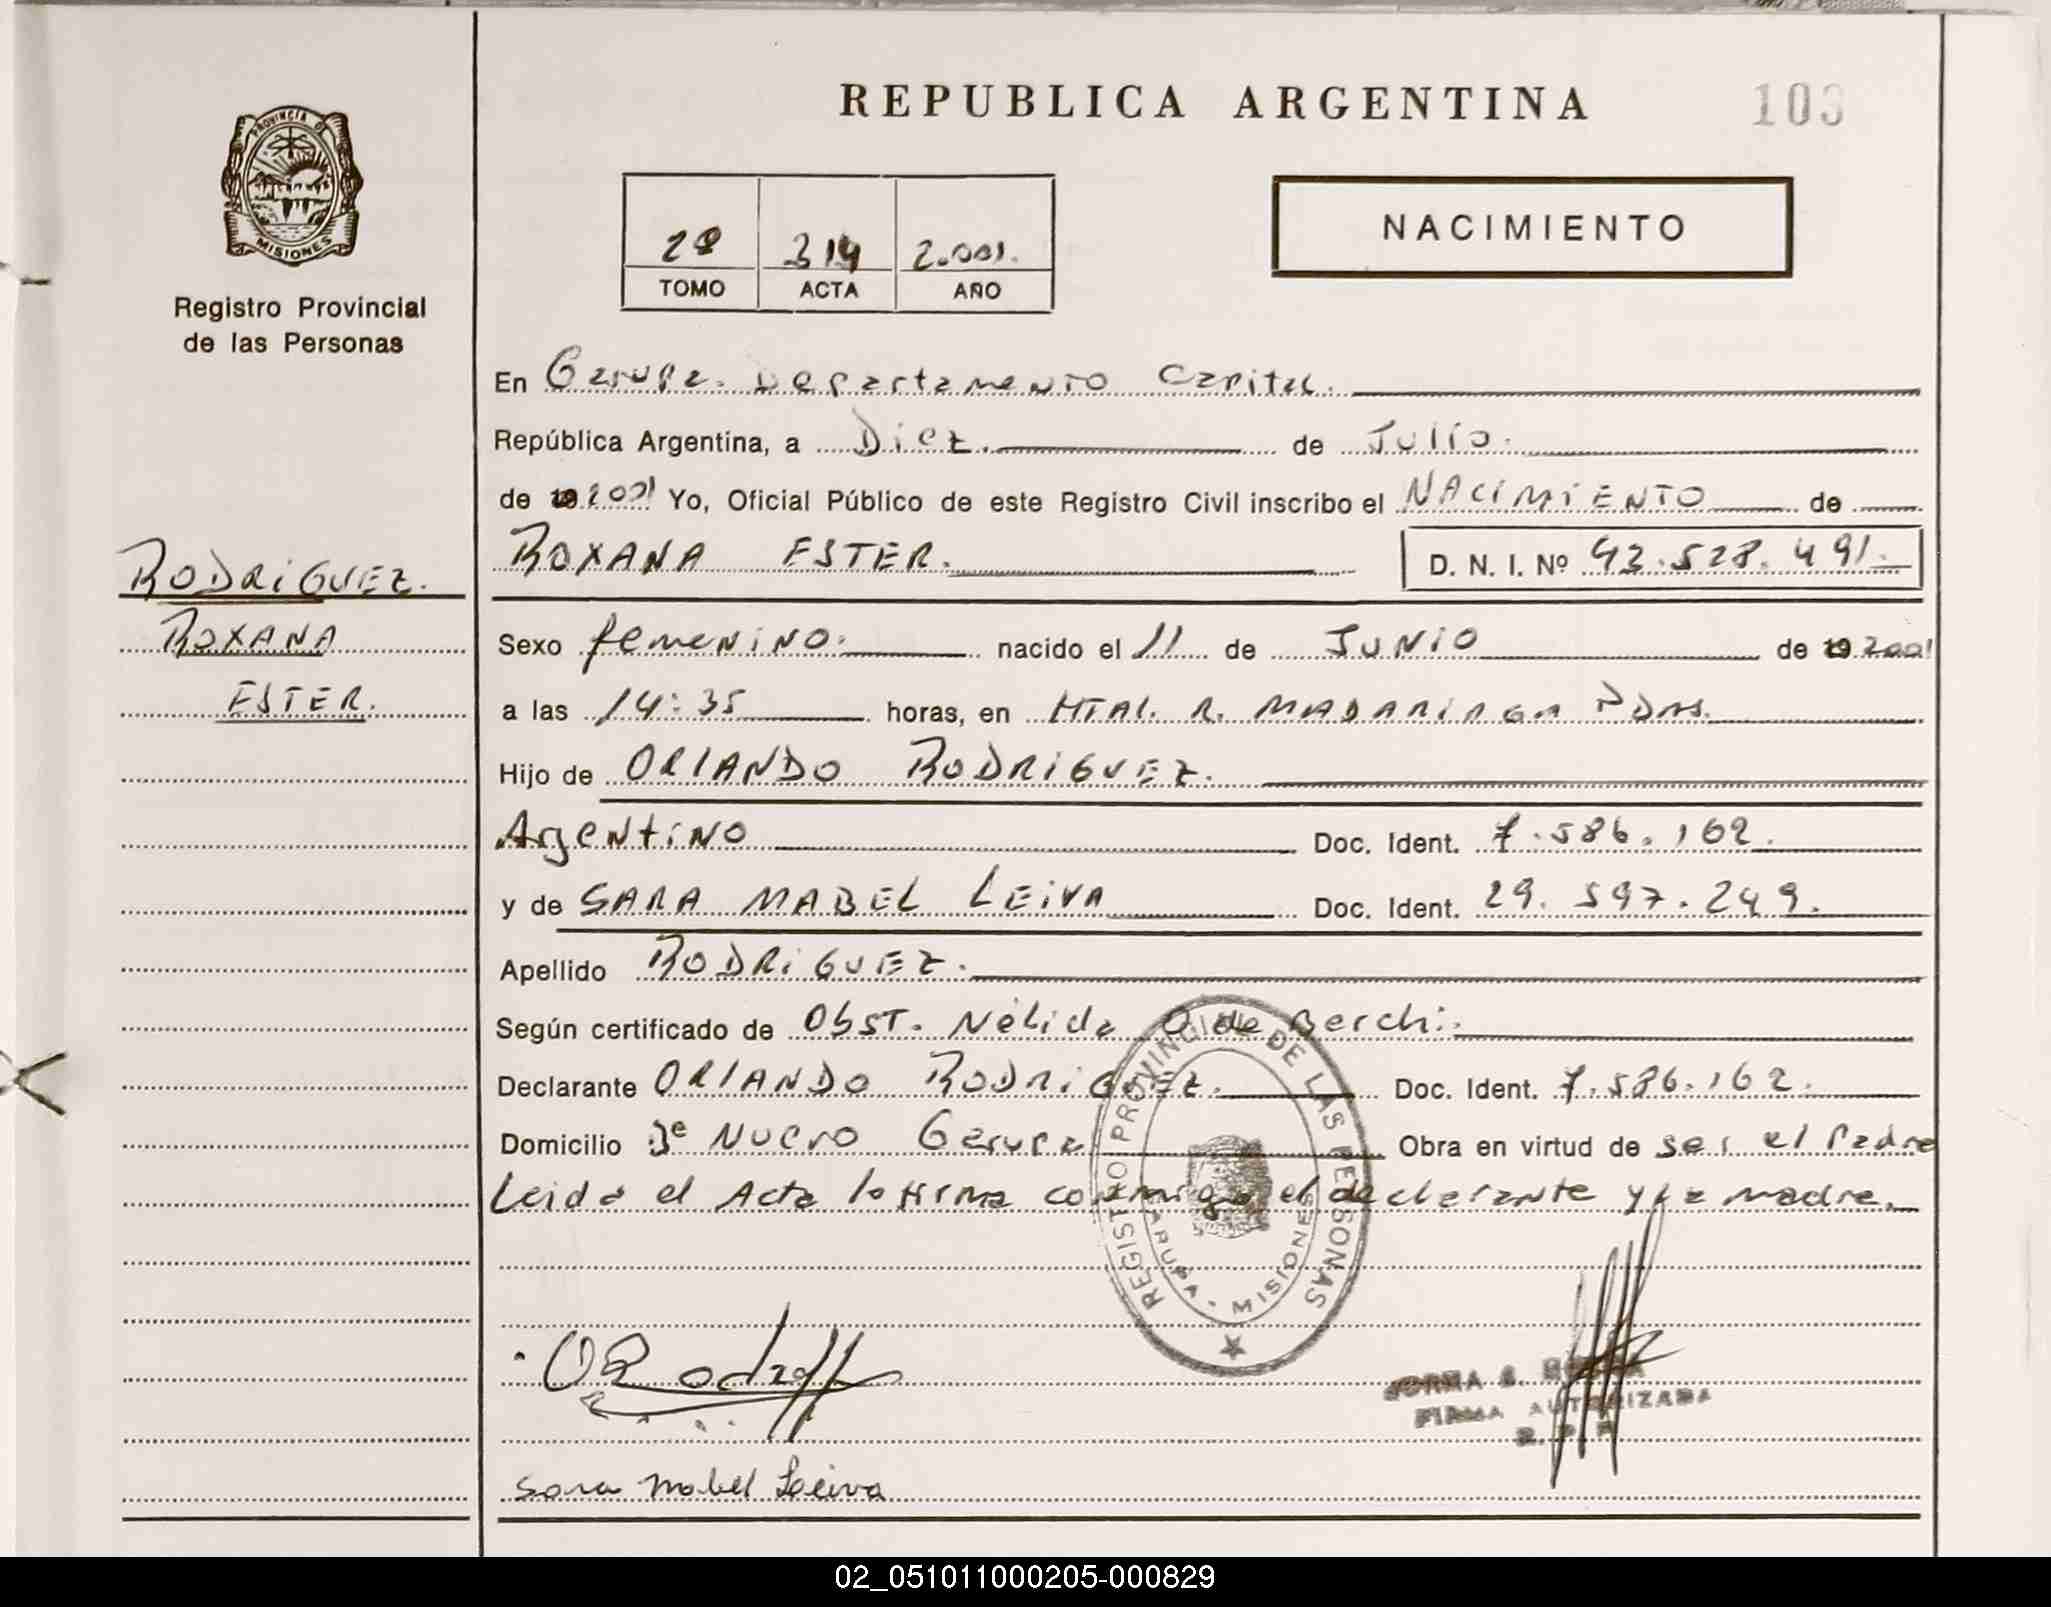 REPUBLICA ARGENTINA
103
PROVINCIA DE
MISIONES
Registro Provincial
de las Personas
28 314 2.001.
TOMO ACTA AÑO
NACIMIENTO
En Garupa. Departamento Capital.
República Argentina, a Diez. de Julio.
de 19 2001 Yo, Oficial Público de este Registro Civil inscribo el NACIMIENTO de
ROXANA ESTER. D. N. I. Nº 43.528.491.
RODRIGUEZ.
ROXANA
ESTER.
Sexo femENiNO. nacido el 11 de JUNIO de 19 2001
a las 14:35 horas, en HTAL. R. MADARIAGA PDAS.
Hijo de ORLANDO RODRIGUEZ.
Argentino Doc. Ident. 7.586.162.
y de SARA MABEL LEIVA Doc. Ident. 29.597.249.
Apellido RODRIGUEZ.
Según certificado de Obst. Nélida O de Berchi.
Declarante ORLANDO RODRIGUEZ. Doc. Ident. 7.586.162.
Domicilio Bº Nuevo Garupa Obra en virtud de ser el Padre
Leida el Acta la firma conmigo el declarante y la madre.
REGISTRO PROVINCIAL DE LAS PERSONAS
GARUPA - MISIONES
ORodr
FIRMA AUTORIZADA
R. P. P.
Sara Mabel Leiva
02_051011000205-000829